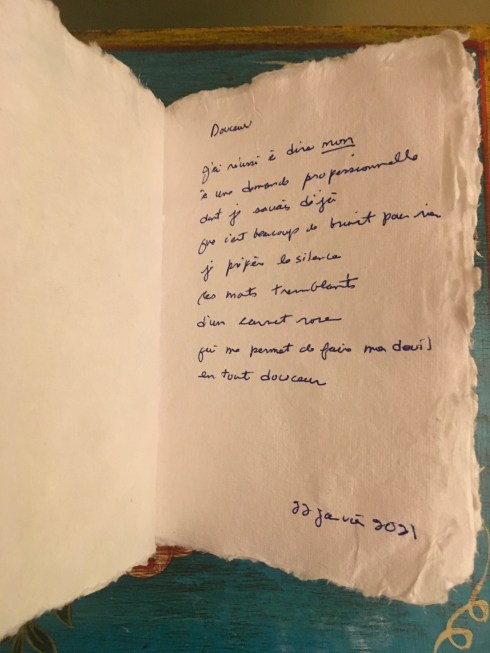 Douceur
j'ai réussi à dire non
à une demande professionnelle
dont je savais déjà
que c'est beaucoup de bruit pour rien
je préfère le silence
les mots tremblants
d'un carnet rose
qui me permet de faire mon deuil
en tout douceur
22 janvier 2021